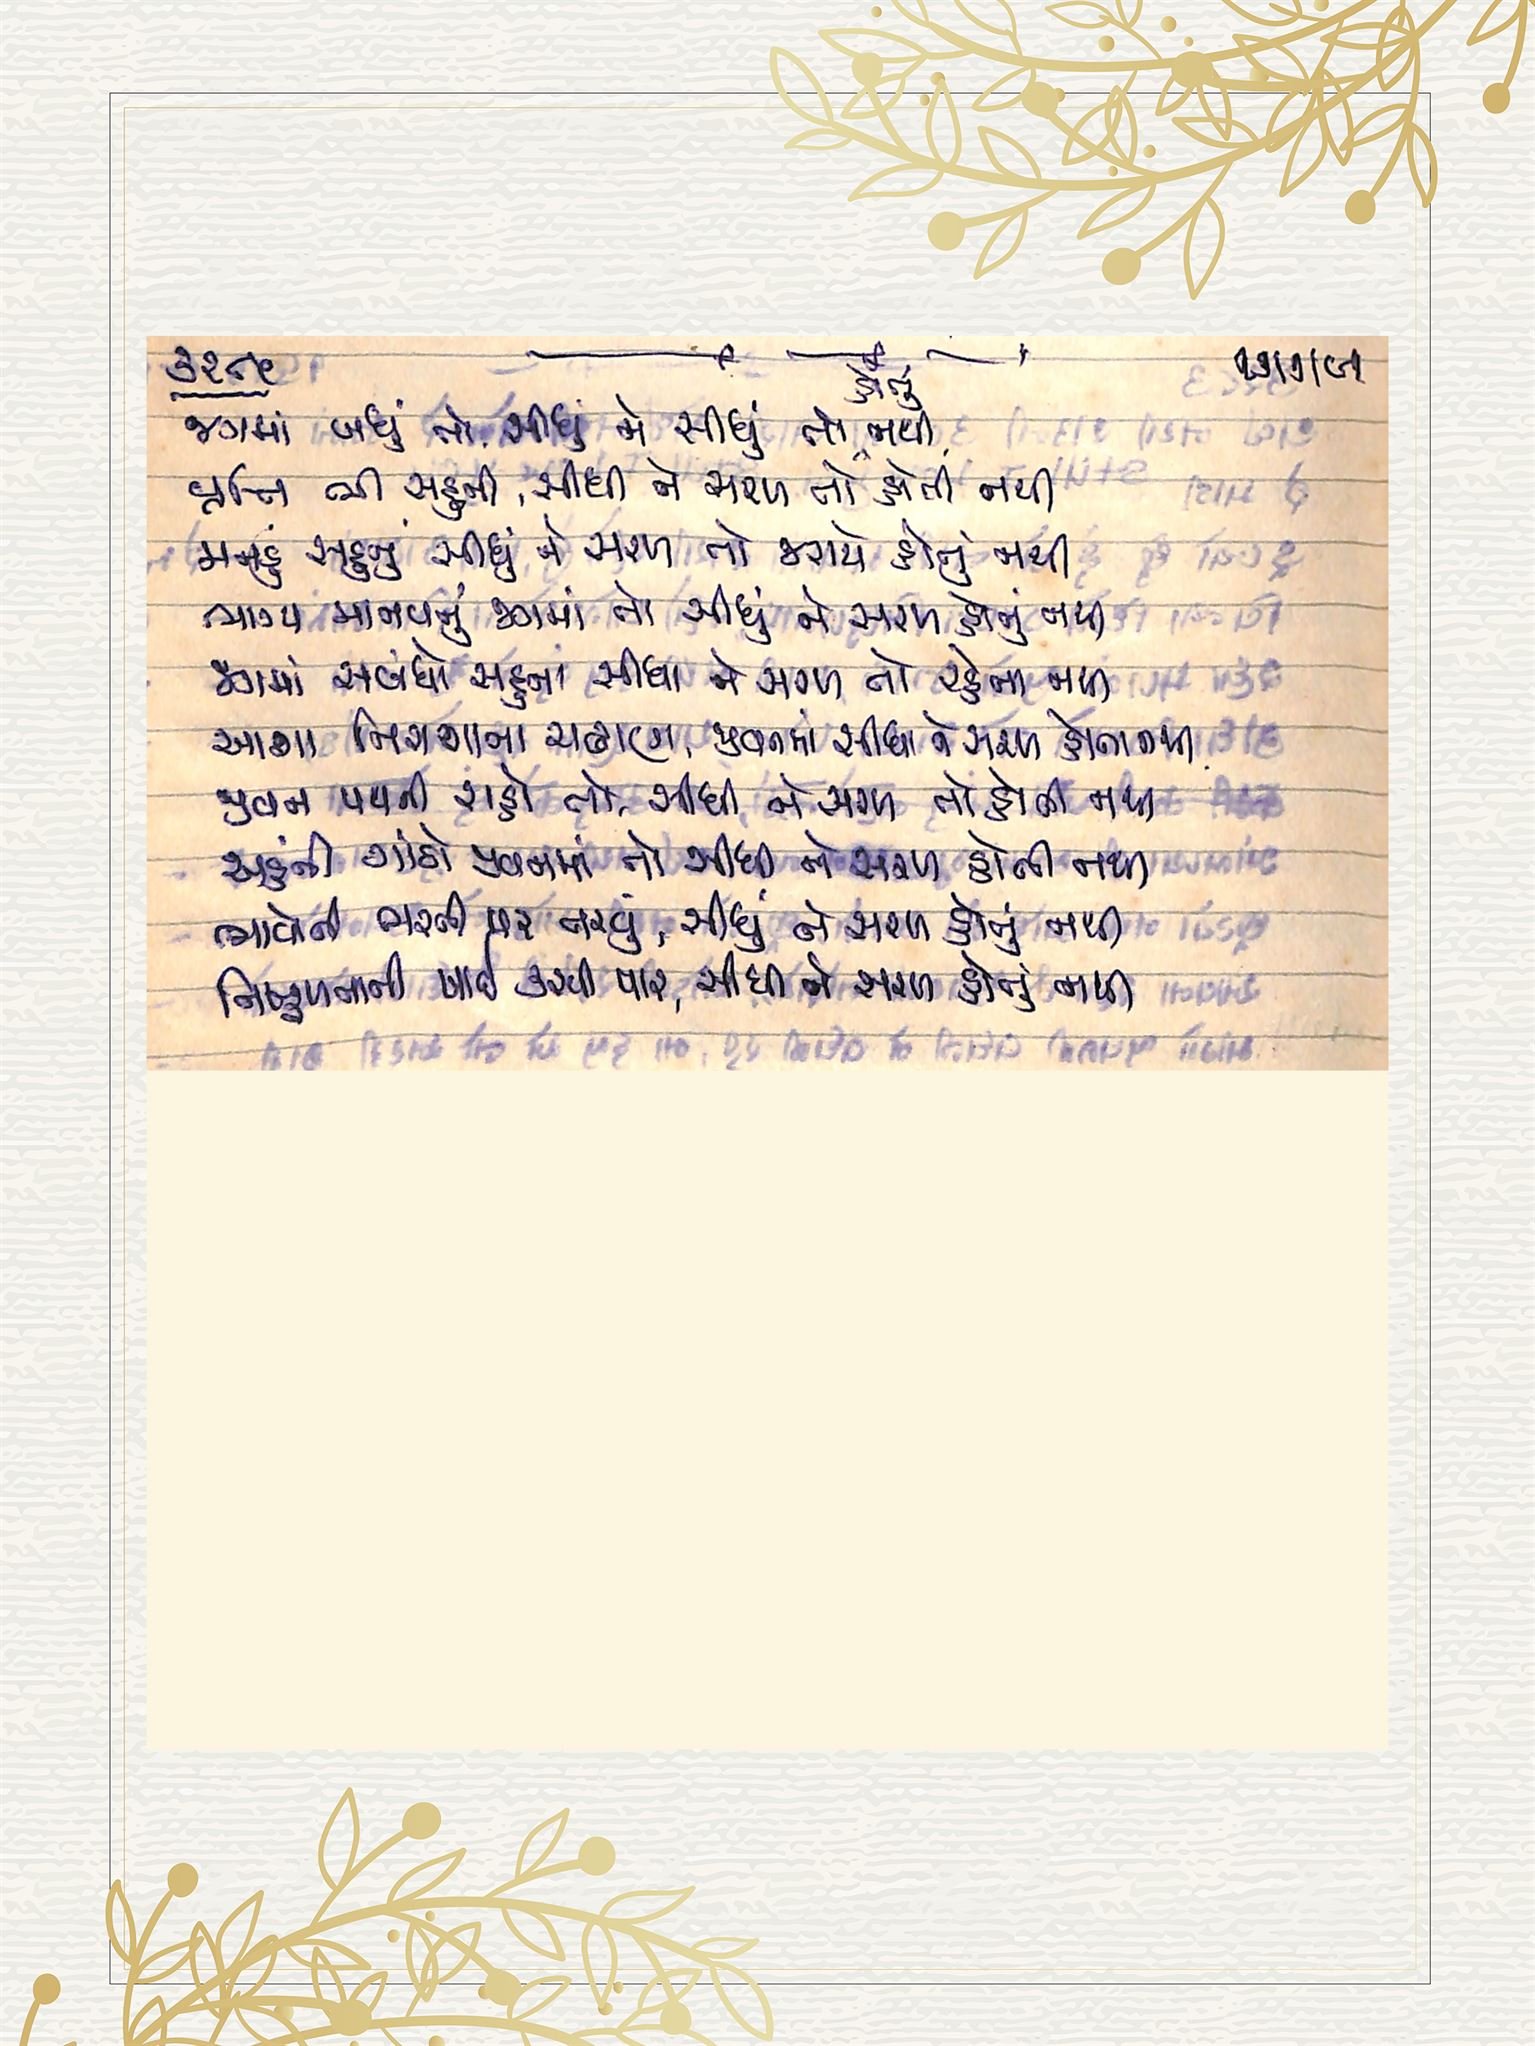 ૩૨૮૯
જગમાં બધું તો, સીધું ને સીધું તો હોતું નથી
વૃત્તિ ભી સહુની, સીધી ને સરળ તો હોતી નથી
મનડું સહુનું સીધું ને સરળ તો જરાયે હોતું નથી
ભાગ્ય માનવનું જગમાં તો સીધું ને સરળ હોતું નથી
જગમાં સબંધો સહુના સીધા ને સરળ તો રહેતા નથી
આશા નિરાશાના ચઢાણ, જીવનમાં સીધા ને સરળ હોતા નથી
જીવન પથની રાહો તો, સીધી ને સરળ તો હોતી નથી
અહંની ગાંઠો જીવનમાં તો સીધી ને સરળ હોતી નથી
ભાવોની ભરતી પર તરવું, સીધું ને સરળ હોતું નથી
નિષ્ફળતાની ખાઈ કરવી પાર, સીધી ને સરળ હોતું નથી